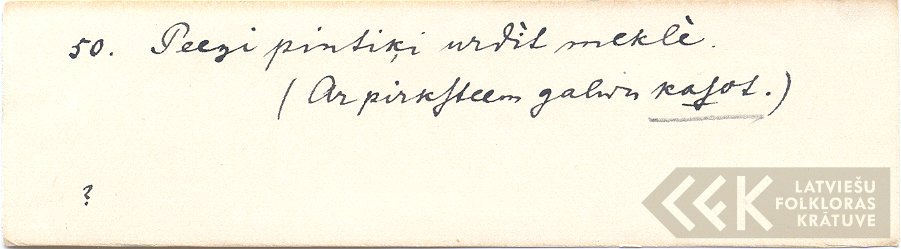 50. Peezi pintiķi urdit meklē.
(Ar pirkſteem galwu kaſot.)
?
LATVIEŠU
FOLKLORAS
KRĀTUVE